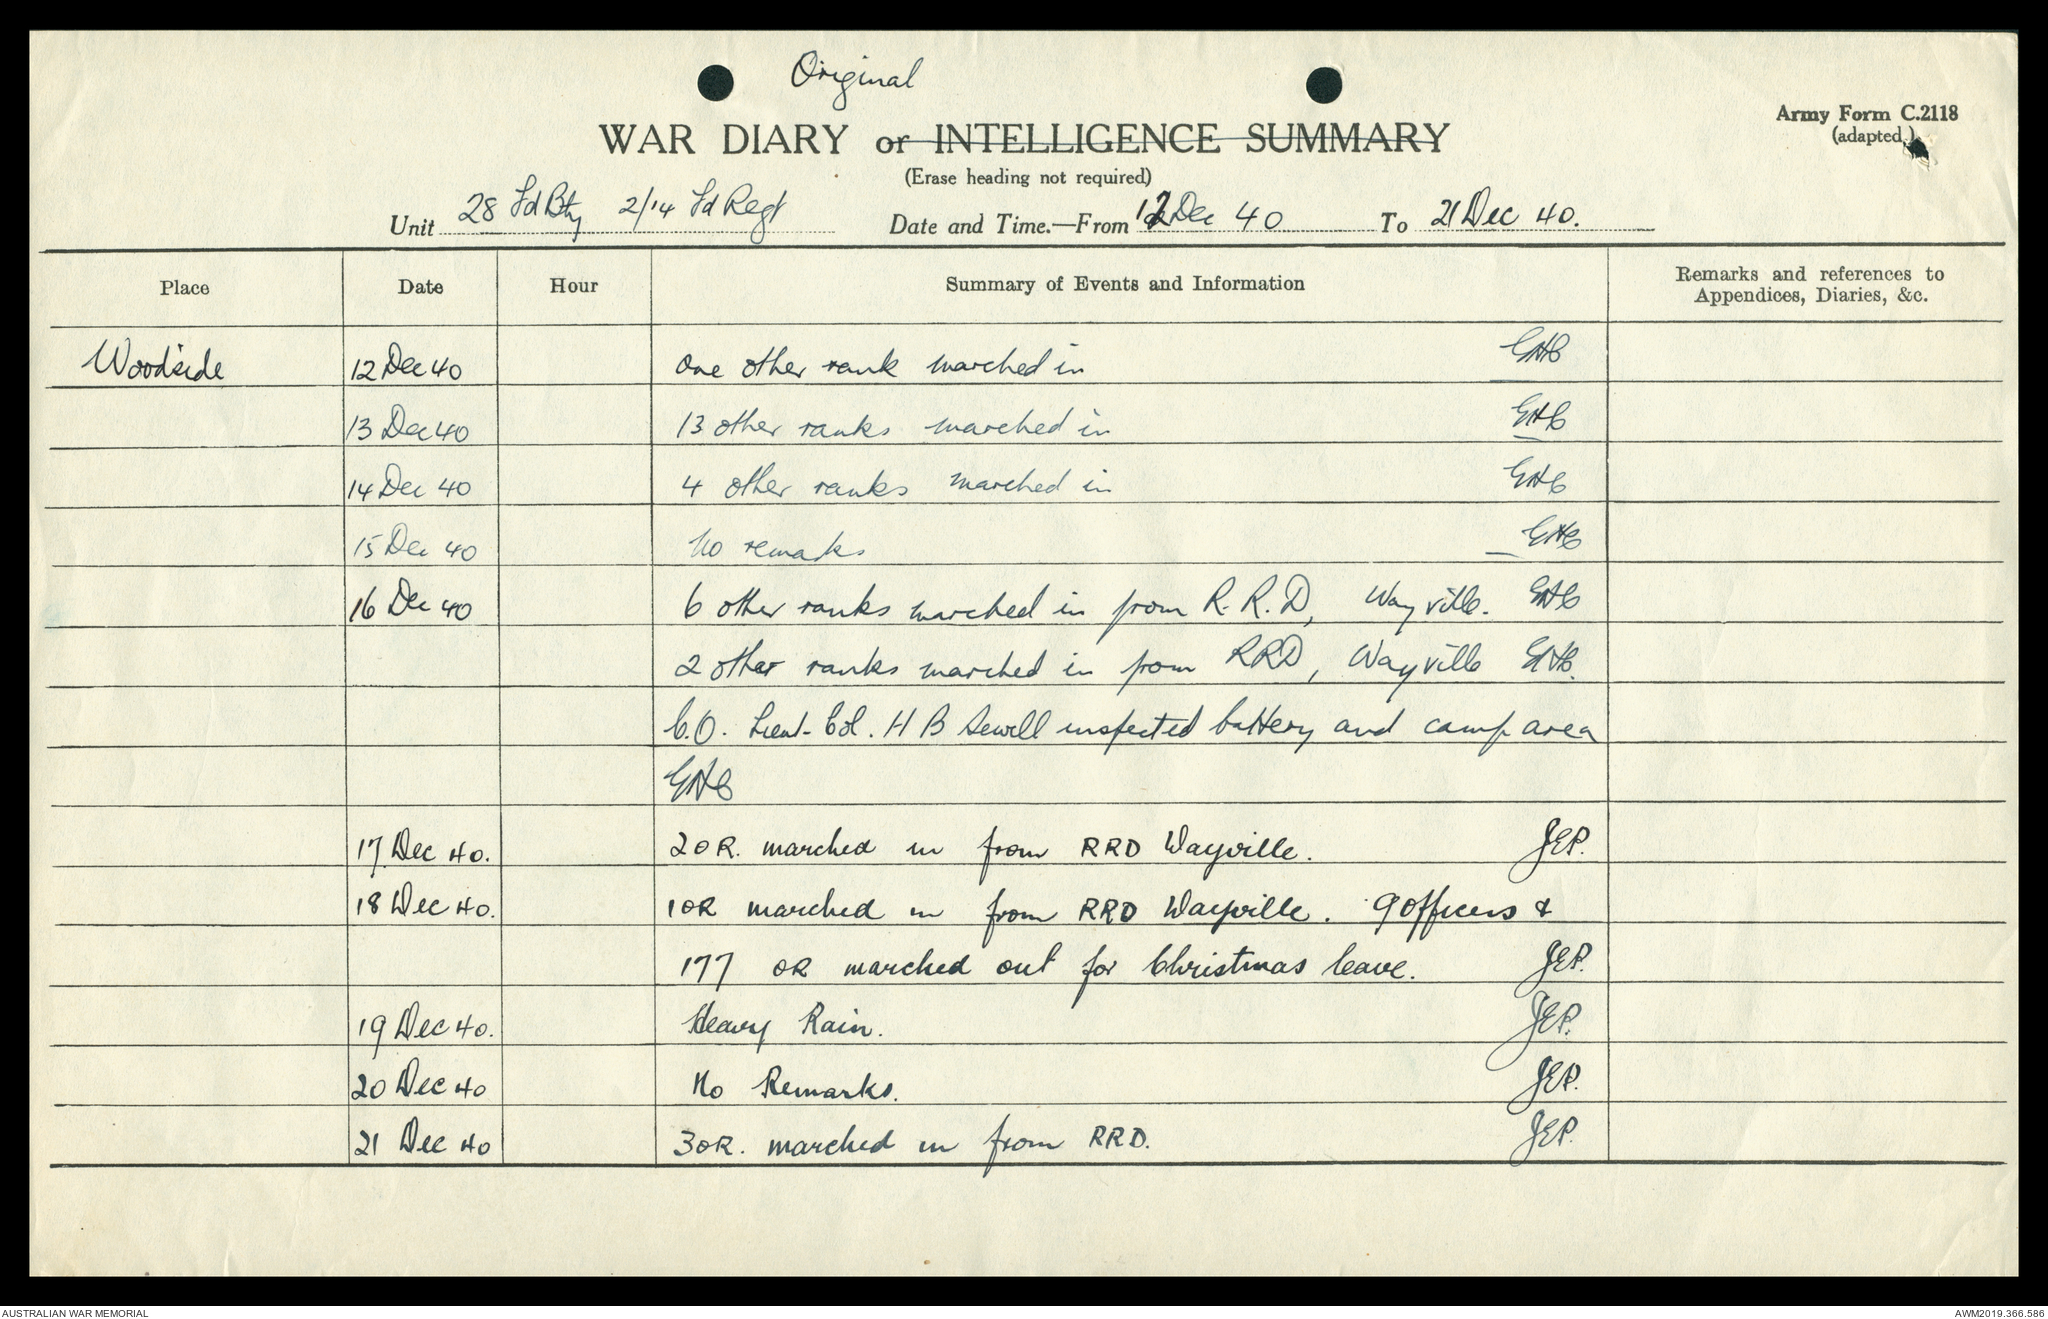 Original
Army Form C.2118
(adapted)
WAR DIARY or INTELLIGENCE SUMMARY
(Erase heading not required)
Unit 28 Fd Bty 2/14 Fd Regt Date and Time.—From 12 Dec 40 To 21 Dec 40.
Place Date Hour Summary of Events and Information Remarks and references to
Appendices, Diaries, &c.
Woodside 12 Dec 40 One other rank marched in GHC
13 Dec 40 13 other ranks marched in GHC
14 Dec 40 4 other ranks marched in GHC
15 Dec 40 No remarks GHC
16 Dec 40 6 other ranks marched in from R.R.D, Wayville. GHC
2 other ranks marched in from RRD, Wayville GHC.
C.O. Lieut-Col. H B Sewell inspected battery and camp area
GHC
17 Dec 40. 2 OR. marched in from RRD Wayville. JEP.
18 Dec 40. 1 OR marched in from RRD Wayville. 9 Officers &
177 OR marched out for Christmas leave. JEP.
19 Dec 40. Heavy Rain. JEP.
20 Dec 40 No Remarks. JEP.
21 Dec 40 3 OR. marched in from RRD. JEP.
AUSTRALIAN WAR MEMORIAL AWM2019.366.586